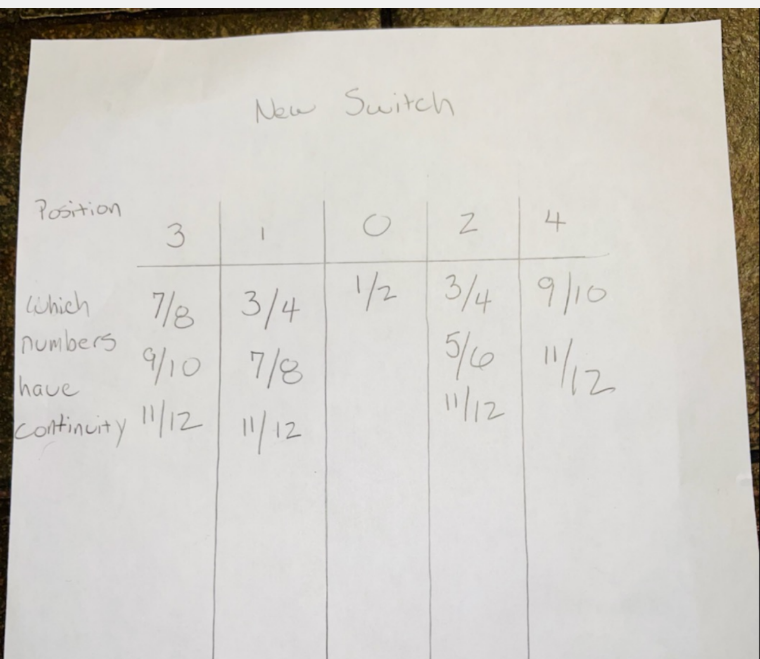 New Switch
Position 3 1 0 2 4
Which 7/8 3/4 1/2 3/4 9/10
numbers 9/10 7/8 5/6 11/12
have 11/12
continuity 11/12 11/12